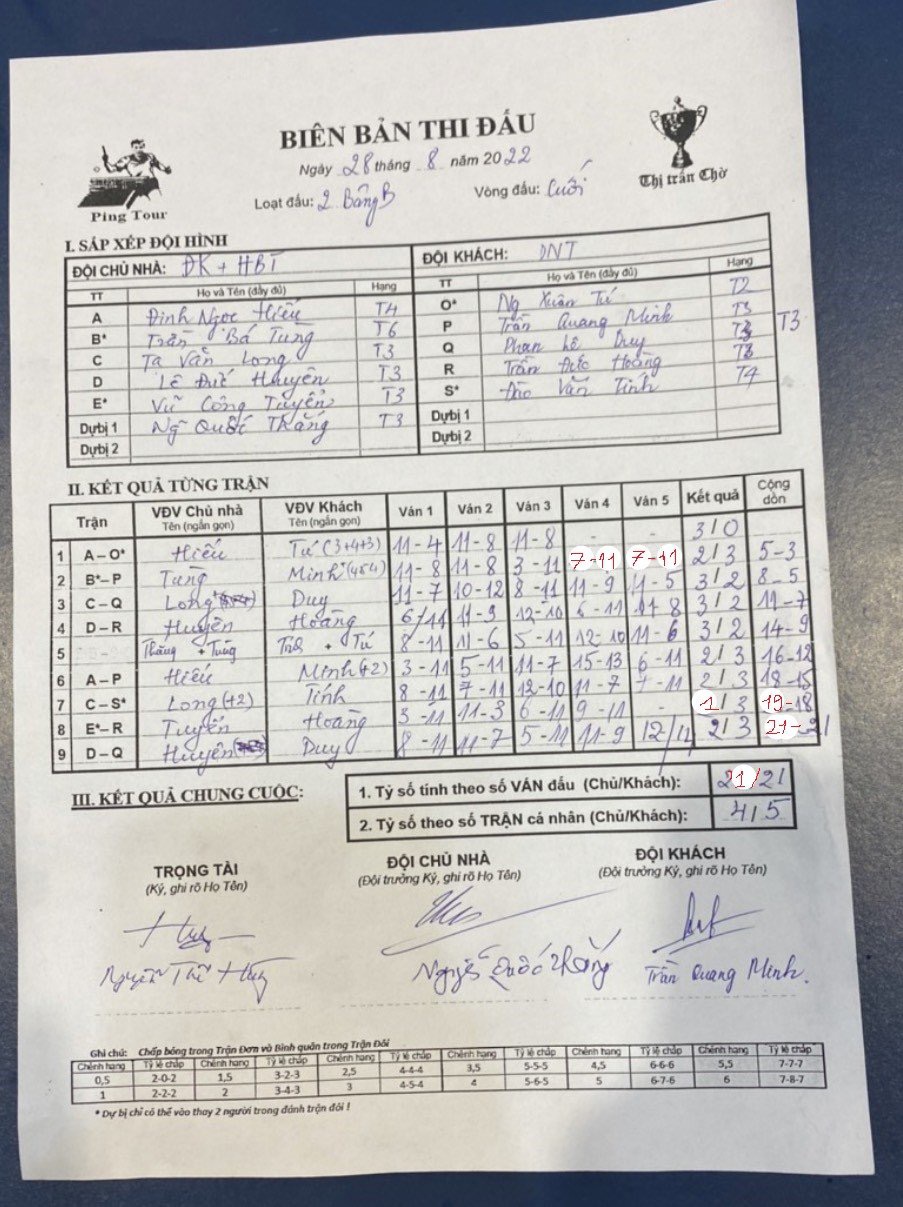 BIÊN BẢN THI ĐẤU
Ngày 28 tháng 8 năm 2022
Loạt đấu: 2 Bảng B Vòng đấu: Cuối
Ping Tour
Thị trấn Chờ
I. SẮP XẾP ĐỘI HÌNH
ĐỘI CHỦ NHÀ: ĐK + HBT ĐỘI KHÁCH: DNT
TT Họ và Tên (đầy đủ) Hạng TT Họ và Tên (đầy đủ) Hạng
A Đinh Ngọc Hiếu T4 O* Ng Xuân Tú T2
B* Trần Bá Tùng T6 P Trần Quang Minh T3
C Tạ Văn Long T3 Q Phan Lê Duy T3
D Lê Đức Huyên T3 R Trần Đức Hoàng T3
E* Vũ Công Tuyển T3 S* Đào Văn Tính T4
Dự bị 1 Ng Quốc Thắng T3 Dự bị 1
Dự bị 2 Dự bị 2
II. KẾT QUẢ TỪNG TRẬN
Trận VĐV Chủ nhà Tên (ngắn gọn) VĐV Khách Tên (ngắn gọn) Ván 1 Ván 2 Ván 3 Ván 4 Ván 5 Kết quả Cộng dồn
1 A – O* Hiếu Tú (3+4+3) 11-4 11-8 11-8 - - 3/0
2 B* – P Tùng Minh* (454) 11-8 11-8 3-11 7-11 7-11 2/3 5-3
3 C – Q Long Duy 11-7 10-12 8-11 11-9 11-5 3/2 8-5
4 D – R Huyên Hoàng 6/11 11-9 12-10 6-11 11-8 3/2 11-7
5 Thắng + Tùng + Tú 8-11 11-6 5-11 12-10 11-6 3/2 14-9
6 A – P Hiếu Minh (+2) 3-11 5-11 11-7 15-13 6-11 2/3 16-12
7 C – S* Long (+2) Tính 8-11 7-11 12-10 11-7 7-11 2/3 18-15
8 E* – R Tuyển Hoàng 3-11 11-3 6-11 9-11 - 1/3 19-18
9 D – Q Huyên Duy 8-11 11-7 5-11 11-9 12/14 2/3 21-21
III. KẾT QUẢ CHUNG CUỘC:
1. Tỷ số tính theo số VÁN đấu (Chủ/Khách): 21/21
2. Tỷ số theo số TRẬN cá nhân (Chủ/Khách): 4/5
TRỌNG TÀI
(Ký, ghi rõ Họ Tên)
ĐỘI CHỦ NHÀ
(Đội trưởng Ký, ghi rõ Họ Tên)
ĐỘI KHÁCH
(Đội trưởng Ký, ghi rõ Họ Tên)
Nguyễn Thế
Nguyễn Quốc Thắng
Trần Quang Minh.
Ghi chú: Chấp bóng trong Trận Đơn và Bình quân trong Trận Đôi
Chênh hạng Tỷ lệ chấp Chênh hạng Tỷ lệ chấp Chênh hạng Tỷ lệ chấp Chênh hạng Tỷ lệ chấp Chênh hạng Tỷ lệ chấp Chênh hạng Tỷ lệ chấp
0,5 2-0-2 1,5 3-2-3 2,5 4-4-4 3,5 5-5-5 4,5 6-6-6 5,5 7-7-7
1 2-2-2 2 3-4-3 3 4-5-4 4 5-6-5 5 6-7-6 6 7-8-7
* Dự bị chỉ có thể vào thay 2 người trong đánh trận đôi !